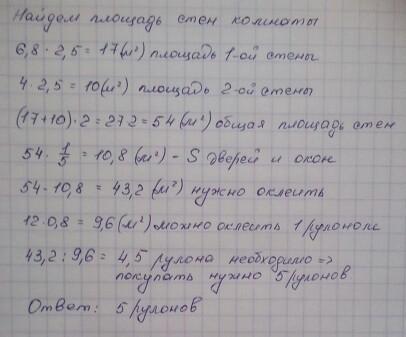 Найдем площадь стен комнаты
6,8 · 2,5 = 17(м²) площадь 1-ой стены
4 · 2,5 = 10(м²) площадь 2-ой стены
(17+10) · 2 = 27 2 = 54 (м²) общая площадь стен
54 · 1/5 = 10,8 (м²) - S дверей и окон
54 - 10,8 = 43,2 (м²) нужно оклеить
12 · 0,8 = 9,6 (м²) можно оклеить 1 рулоном
43,2 : 9,6 = 4,5 рулона необходимо =>
покупать нужно 5 рулонов
Ответ: 5 рулонов